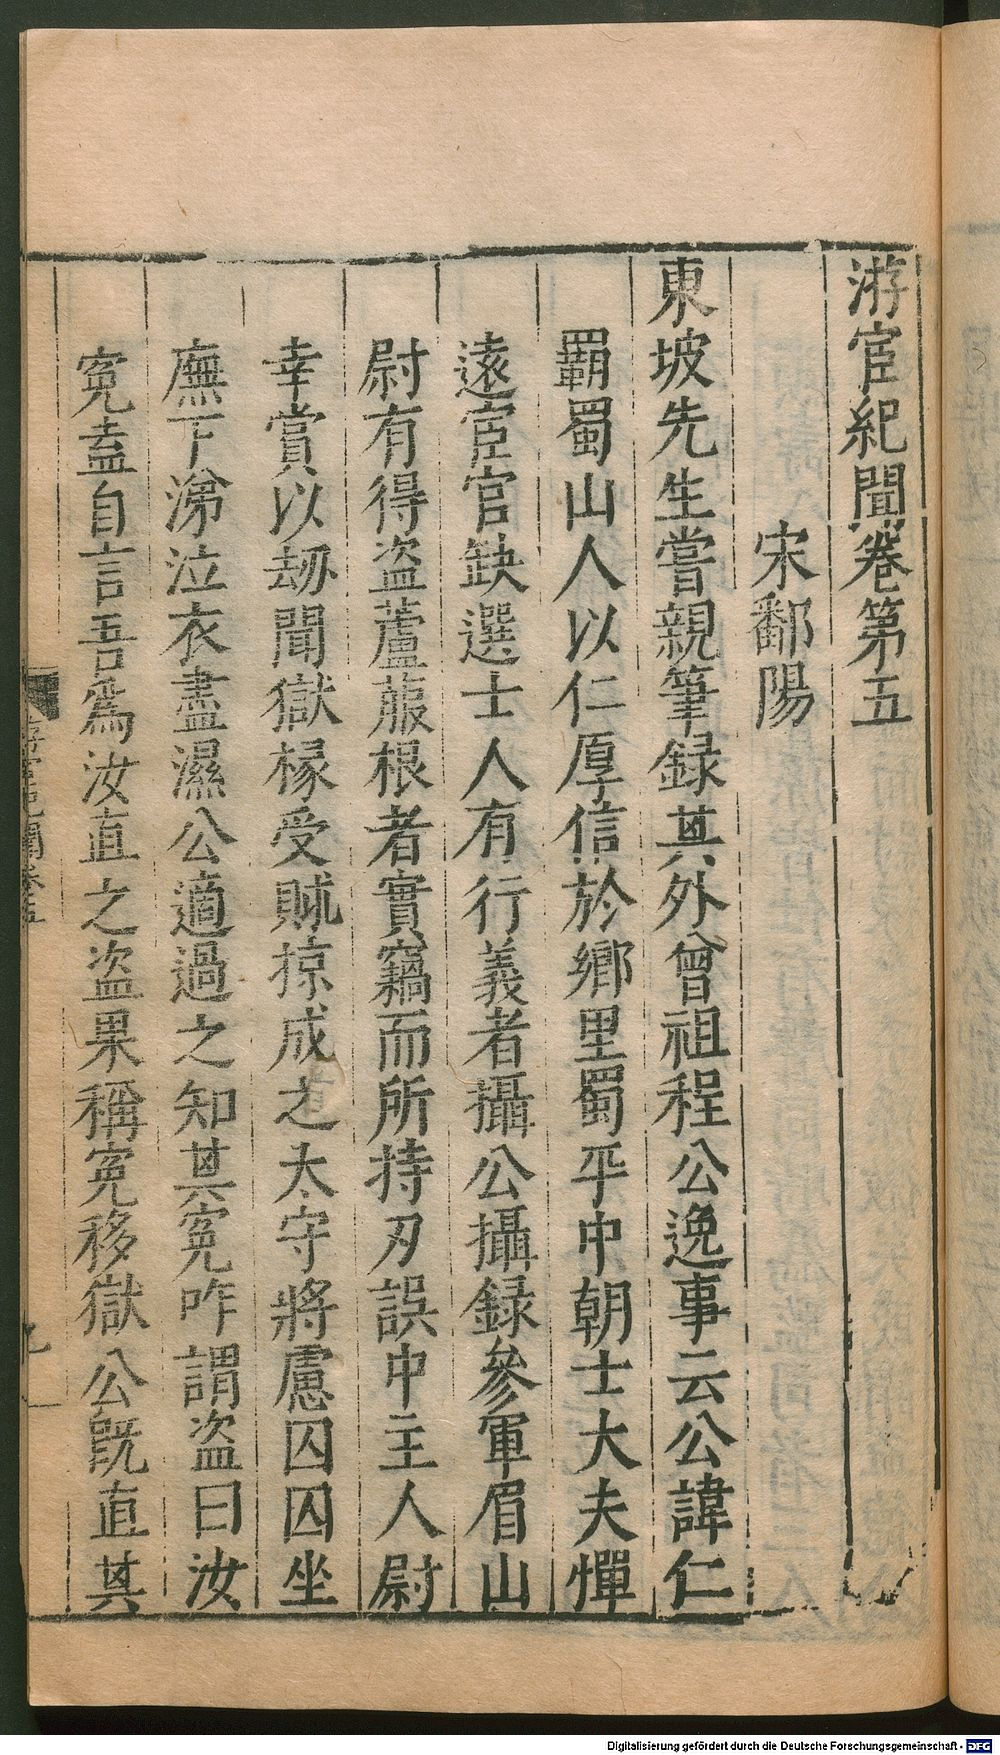 游宦紀聞卷第五
宋鄱陽
東坡先生嘗親筆録其外曾祖程公逸事云公諱仁
霸蜀山人以仁厚信於鄉里蜀平中朝士大夫憚
遠宦官缺選士人有行義者攝公攝録參軍眉山
尉有得盗蘆菔根者實竊而所持刃誤中主人尉
幸賞以劫聞獄椽受賕掠成之太守將慮囚囚坐
廡下涕泣衣盡濕公適過之知其寃咋謂盗曰汝
寃盍自言吾爲汝直之盗果稱寃移獄公既直其
游宦紀聞卷五
Digitalisierung gefördert durch die Deutsche Forschungsgemeinschaft - DFG